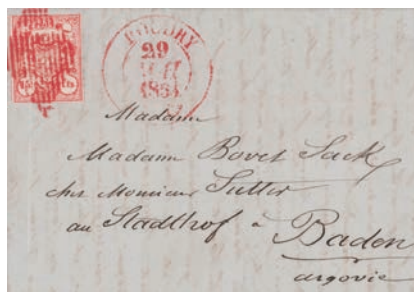 BOUDRY
29
1854
Madame
Madame Bovet Sack
chez Monsieur Sutter
au Stadthof à
Baden
argovie